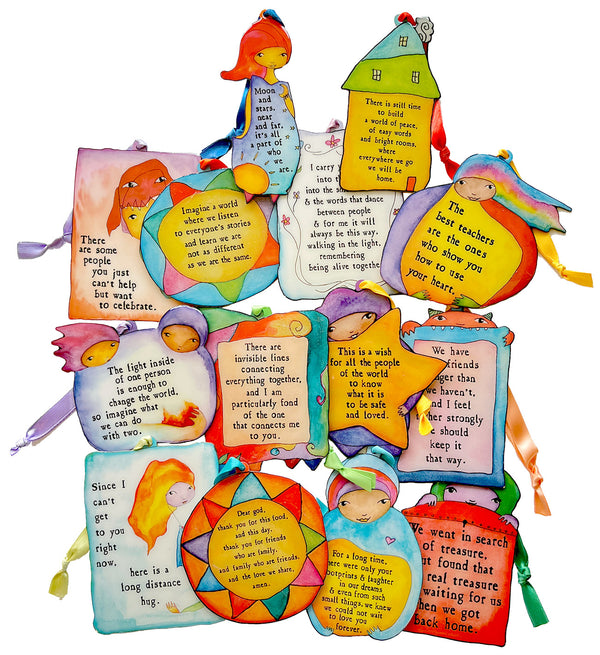 Moon
and
stars,
near
and far,
it's all
a part of
who
we
are.
There is still time
to build
a world of peace,
of easy words
and bright rooms,
where
everywhere we go
we will be
home.
There
are some
people
you just
can't help
but want
to celebrate.
Imagine a world
where we listen
to everyone's stories
and learn we are
not as different
as we are the same.
I carry
into th
into the s
& the words that dance
between people
& for me it will
always be this way,
walking in the light,
remembering
being alive togethe
The
best teachers
are the ones
who show you
how to use
your heart.
The light inside
of one person
is enough to
change the world,
so imagine what
we can do
with two.
There are
invisible lines
connecting
everything together,
and I am
particularly fond
of the one
that connects me
to you.
This is a wish
for all the people
of the world
to know
what it is
to be safe
and loved.
We have
friends
nger than
we haven't,
and I feel
her strongly
e should
keep it
that way.
Since I
can't
get
to you
right
now,
here is a
long distance
hug.
Dear god,
thank you for this food,
and this day,
thank you for friends
who are family,
and family who are friends,
and the love we share,
amen.
For a long time,
here were only your
footprints & laughter
in our dreams
& even from such
small things, we knew
we could not wait
to love you
forever.
We went in search
of treasure,
but found that
real treasure
waiting for us
when we got
back home.